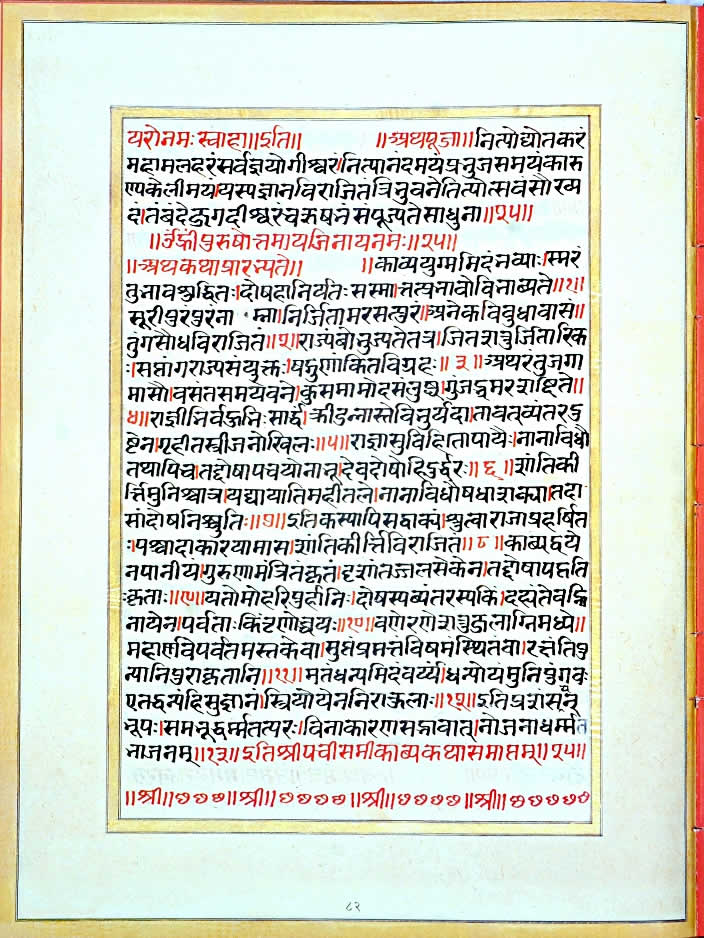 यरोनमः स्वाहा॥इति॥ ॥अथपूजा॥नित्योद्योतकरं
महामलहरंसर्वज्ञयोगीश्वरं।नित्यानंदमयंप्रनुजसमयंकारु
ण्पकैलीमयं।यस्यज्ञानविराजितंत्रिनुवनेतित्योत्सवंसौख्य
दं।तंबंदेजगदीश्वरंवऋषनंसंपूज्यतेसाधुना॥२५॥
॥उँह्रीपुरुषोत्तमायजिनायनमः॥२५॥
॥अथकथाप्रारभ्यते॥ ॥काव्ययुग्ममिदंनव्याः।स्मरं
तुनावशुद्धितः।दोषहानिर्यतः सस्मा।त्तत्पनावोविनाव्यते॥१॥
सूरीपुरंपुरंनाम्ना।निर्जितामरसत्पुरं।अनेकविबुधावासं॥
तुंगसौधविराजितं॥२॥राज्यंबोनुज्यतेतत्र।जितशत्रुर्जितारिकः
।सप्तांगराज्यसंयुक्तः।षद्गुणांकितविग्रहः॥३॥अथरंतुंजगा
मासौ।वसंतसमयेवने।कुसमामोदसंलुब्ध।गुंजद्भ्रमरराजिते॥
४॥राज्ञीनिर्वऊनिः सार्द्धं।क्रीडन्नास्तेविनुर्यदा।तावत्व्यंतरदु
ष्टेन।गृहीतस्त्रीजनोखिलः॥५॥राज्ञासुविहितोपायैः।नानाविधै
तथापिच।तद्दोषापचयोनानू।द्देवदोषोहिदुर्द्धरः॥६॥शांतिकी
र्त्तिमुनिश्चात्र।यद्यायातिमहीतले।नानाविधौषधाशक्या।तदा
सांदोषनिश्चुतिः॥७॥इतिकस्यापिसद्वाक्यं।श्रुत्वाराजाप्रहर्षित
ः।पश्चादाकारयामास।शांतिकीर्त्तिविराजितं॥८॥काव्यद्वये
नपानीयं।गुरुणामंत्रितंकृतं।दृशांतज्जलसेकेन।तद्दोषापहृति
ःकृताः॥९॥यतोमोहरिपुर्हानिः।दोषस्यव्यंतरस्पकि।दह्यंतेवह्नि
नायेन।पर्वताःकिंटृणोच्चयः॥१०॥वणेरणेशत्रुजलाग्निमध्ये॥
महार्णवेपर्वतमस्तकेवा।सुप्तंप्रमत्तंविषमस्थितंवा।रक्षंतिपु
ण्यानिपुराकृतानि॥११॥मतंधन्यमिदंवर्य्यं।धन्योयंमुनिपुंगवः
एतद्धन्यंहिसुज्ञानं।स्त्रियोयेननिराऊलाः॥१२॥इतिप्रशंसन्
नृपः।समनूद्धर्म्मतत्परः।विनाकारणसद्भावात्।नोजनाधर्म्मत
नाजनम्॥१३॥इतिश्रीपचीसमीकाव्यकथासमाप्तम्॥२५॥
॥श्री॥७७७॥श्री॥७७७७॥श्री॥७७७७॥श्री॥७७७७७
८२